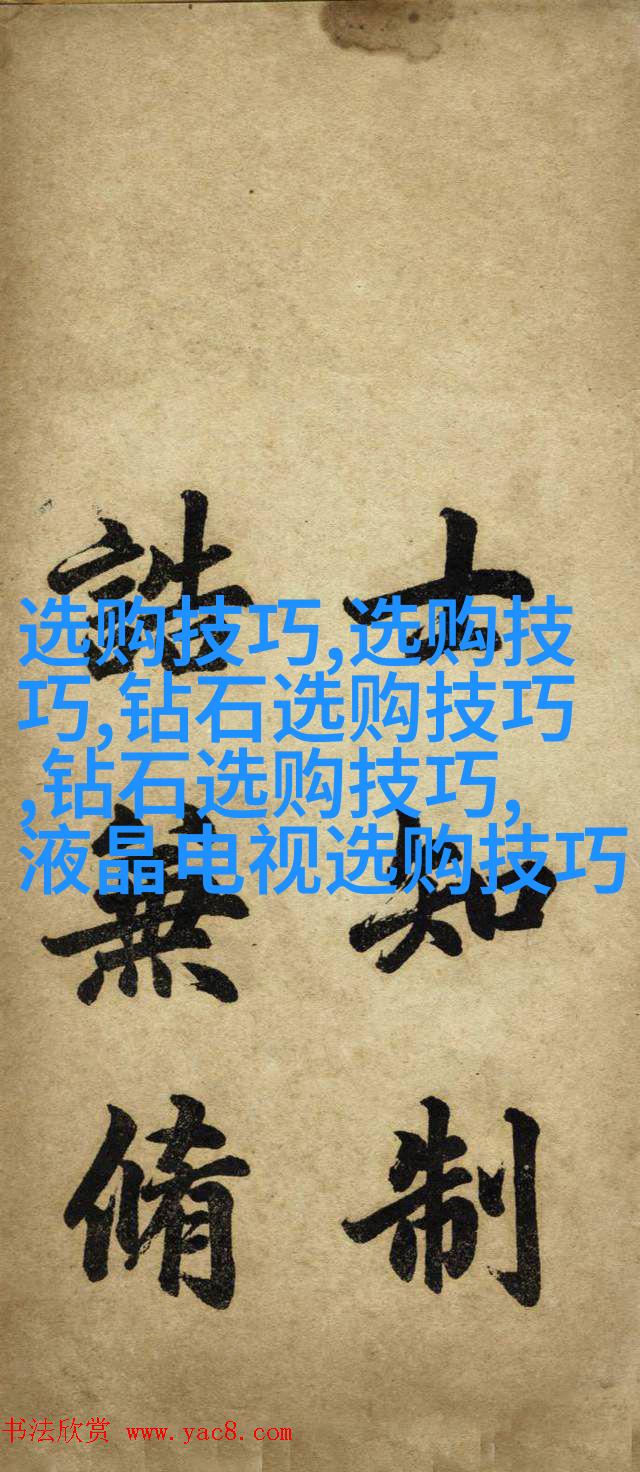 选购技巧,选购技
巧,钻石选购技巧
,钻石选购技巧,
液晶电视选购技巧
士知制
誥兼脩
书法欣赏 www.yac8.com